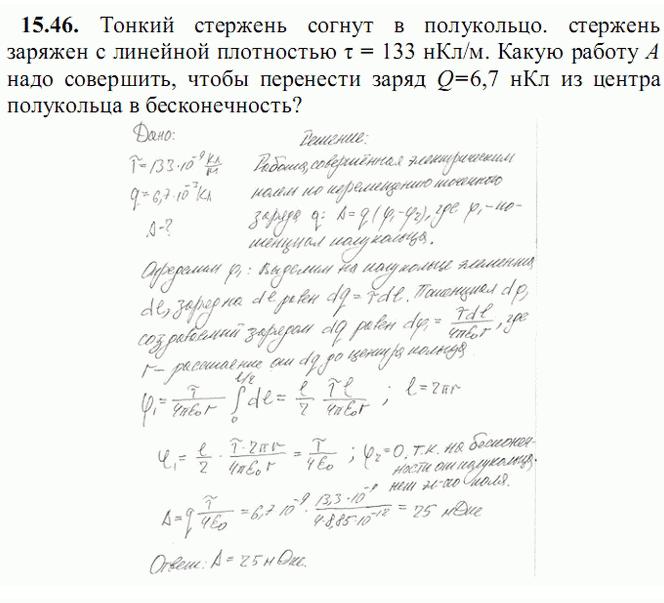 15.46. Тонкий стержень согнут в полукольцо. стержень
заряжен с линейной плотностью τ = 133 нКл/м. Какую работу А
надо совершить, чтобы перенести заряд Q=6,7 нКл из центра
полукольца в бесконечность?
Дано:
τ=133·10⁻⁹ Кл/м
q=6,7·10⁻⁹ Кл
A-?
Решение:
Работа, совершённая электрическим
полем по перемещению точечного
заряда q: A=q(φ₁-φ₂), где φ₁-по-
тенциал полукольца.
Определим φ₁: Выделим на полукольце элемент
dl, заряд на dl равен dq=τdl. Потенциал dφ,
создаваемый зарядом dq равен dφ₁= τdl/4πε₀r, где
r – расстояние от dq до центра кольца
φ₁= τ/4πε₀r ∫₀^(l/2) dl= 1/2 τl/4πε₀r ; l=2πr
φ₁= 1/2 · τ·2πr/4πε₀r = τ/4ε₀ ; φ₂=0, т.к. на бесконеч-
ности от полукольца
нет эл-го поля.
A=q τ/4ε₀ =6,7·10⁻⁹ · 13,3·10⁻⁸/4·8,85·10⁻¹² = 25 мДж
Ответ: A=25 мДж.